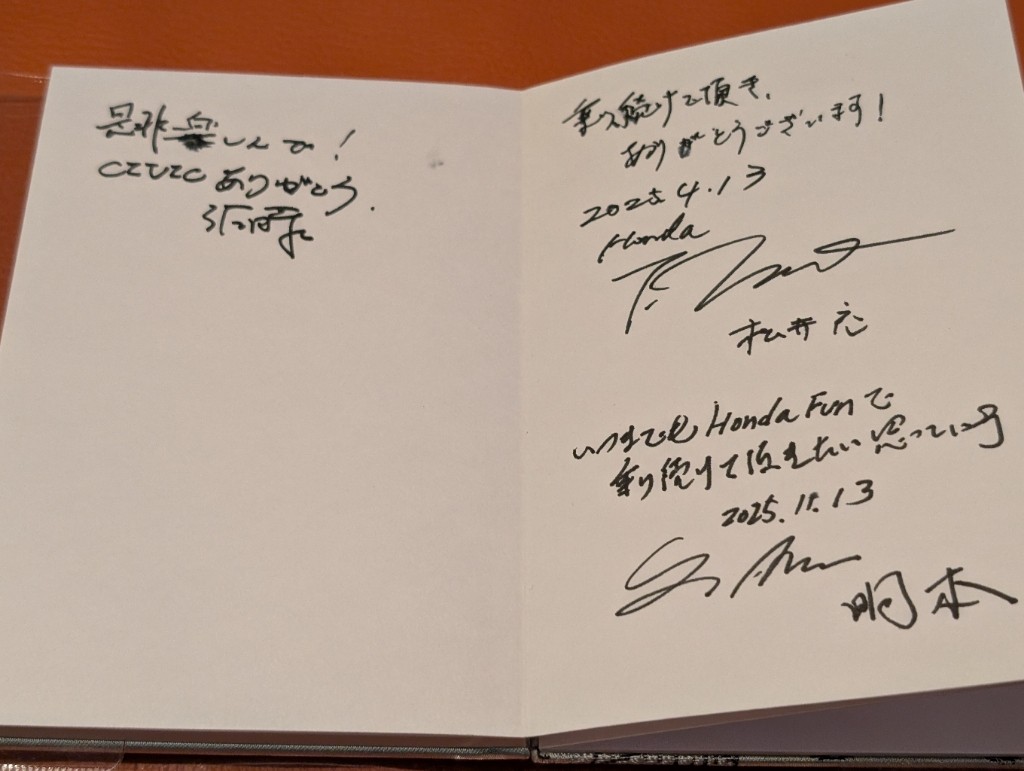 是非楽しんで!
CIVIC ありがとう.
乗り続けて頂き、
ありがとうございます!
2025.4.13
Honda
松井 充
いつまでも Honda Funで
乗り続けて頂きたい思っている
2025.11.13
明本